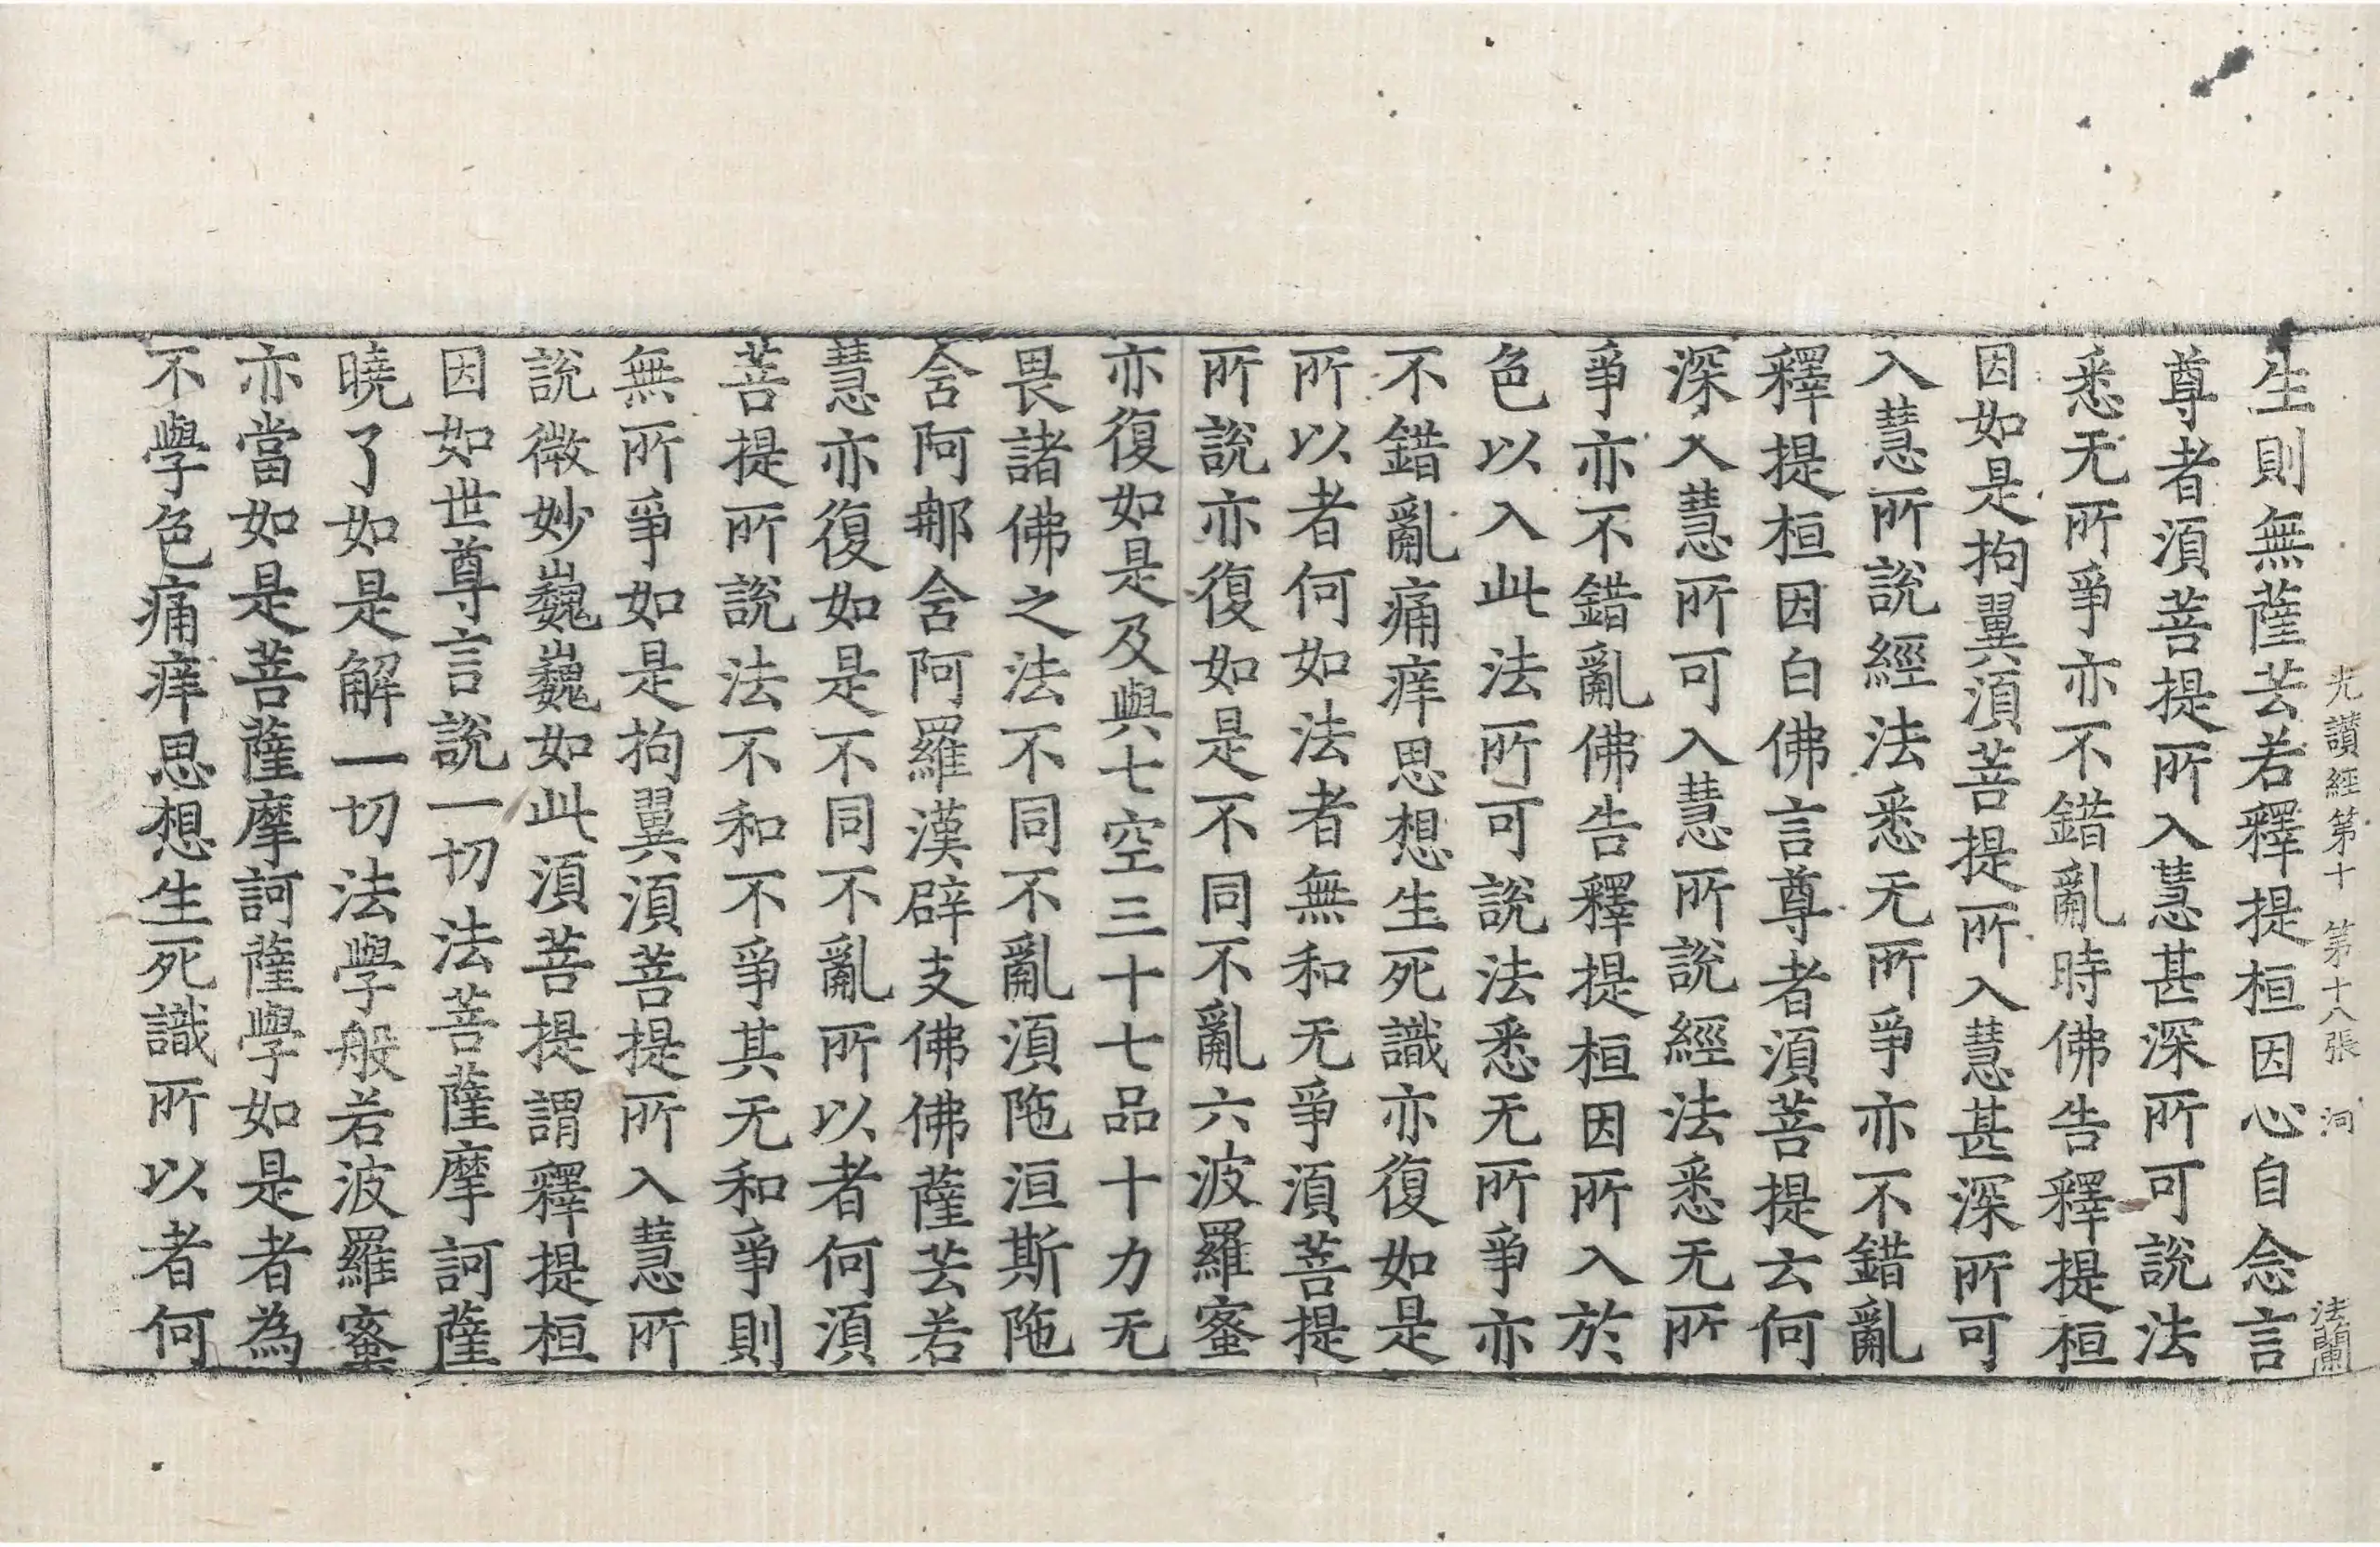 光讃經第十 第十八張 洞 法蘭
生則無薩芸若釋提桓因心自念言
尊者湏菩提所入慧甚深所可說法
悉无所爭亦不錯亂時佛告釋提桓
因如是拘翼湏菩提所入慧甚深所可
入慧所說經法悉无所爭亦不錯亂
釋提桓因白佛言尊者湏菩提云何
深入慧所可入慧所說經法悉无所
爭亦不錯亂佛告釋提桓因所入於
色以入此法所可說法悉无所爭亦
不錯亂痛痒思想生死識亦復如是
所以者何如法者無和无爭湏菩提
所說亦復如是不同不亂六波羅蜜
亦復如是及與七空三十七品十力无
畏諸佛之法不同不亂湏陁洹斯陁
含阿那含阿羅漢辟支佛佛薩芸若
慧亦復如是不同不亂所以者何湏
菩提所說法不和不爭其无和爭則
無所爭如是拘翼湏菩提所入慧所
說微妙巍巍如此湏菩提謂釋提桓
因如世尊言說一切法菩薩摩訶薩
曉了如是解一切法學般若波羅蜜
亦當如是菩薩摩訶薩學如是者為
不學色痛痒思想生死識所以者何